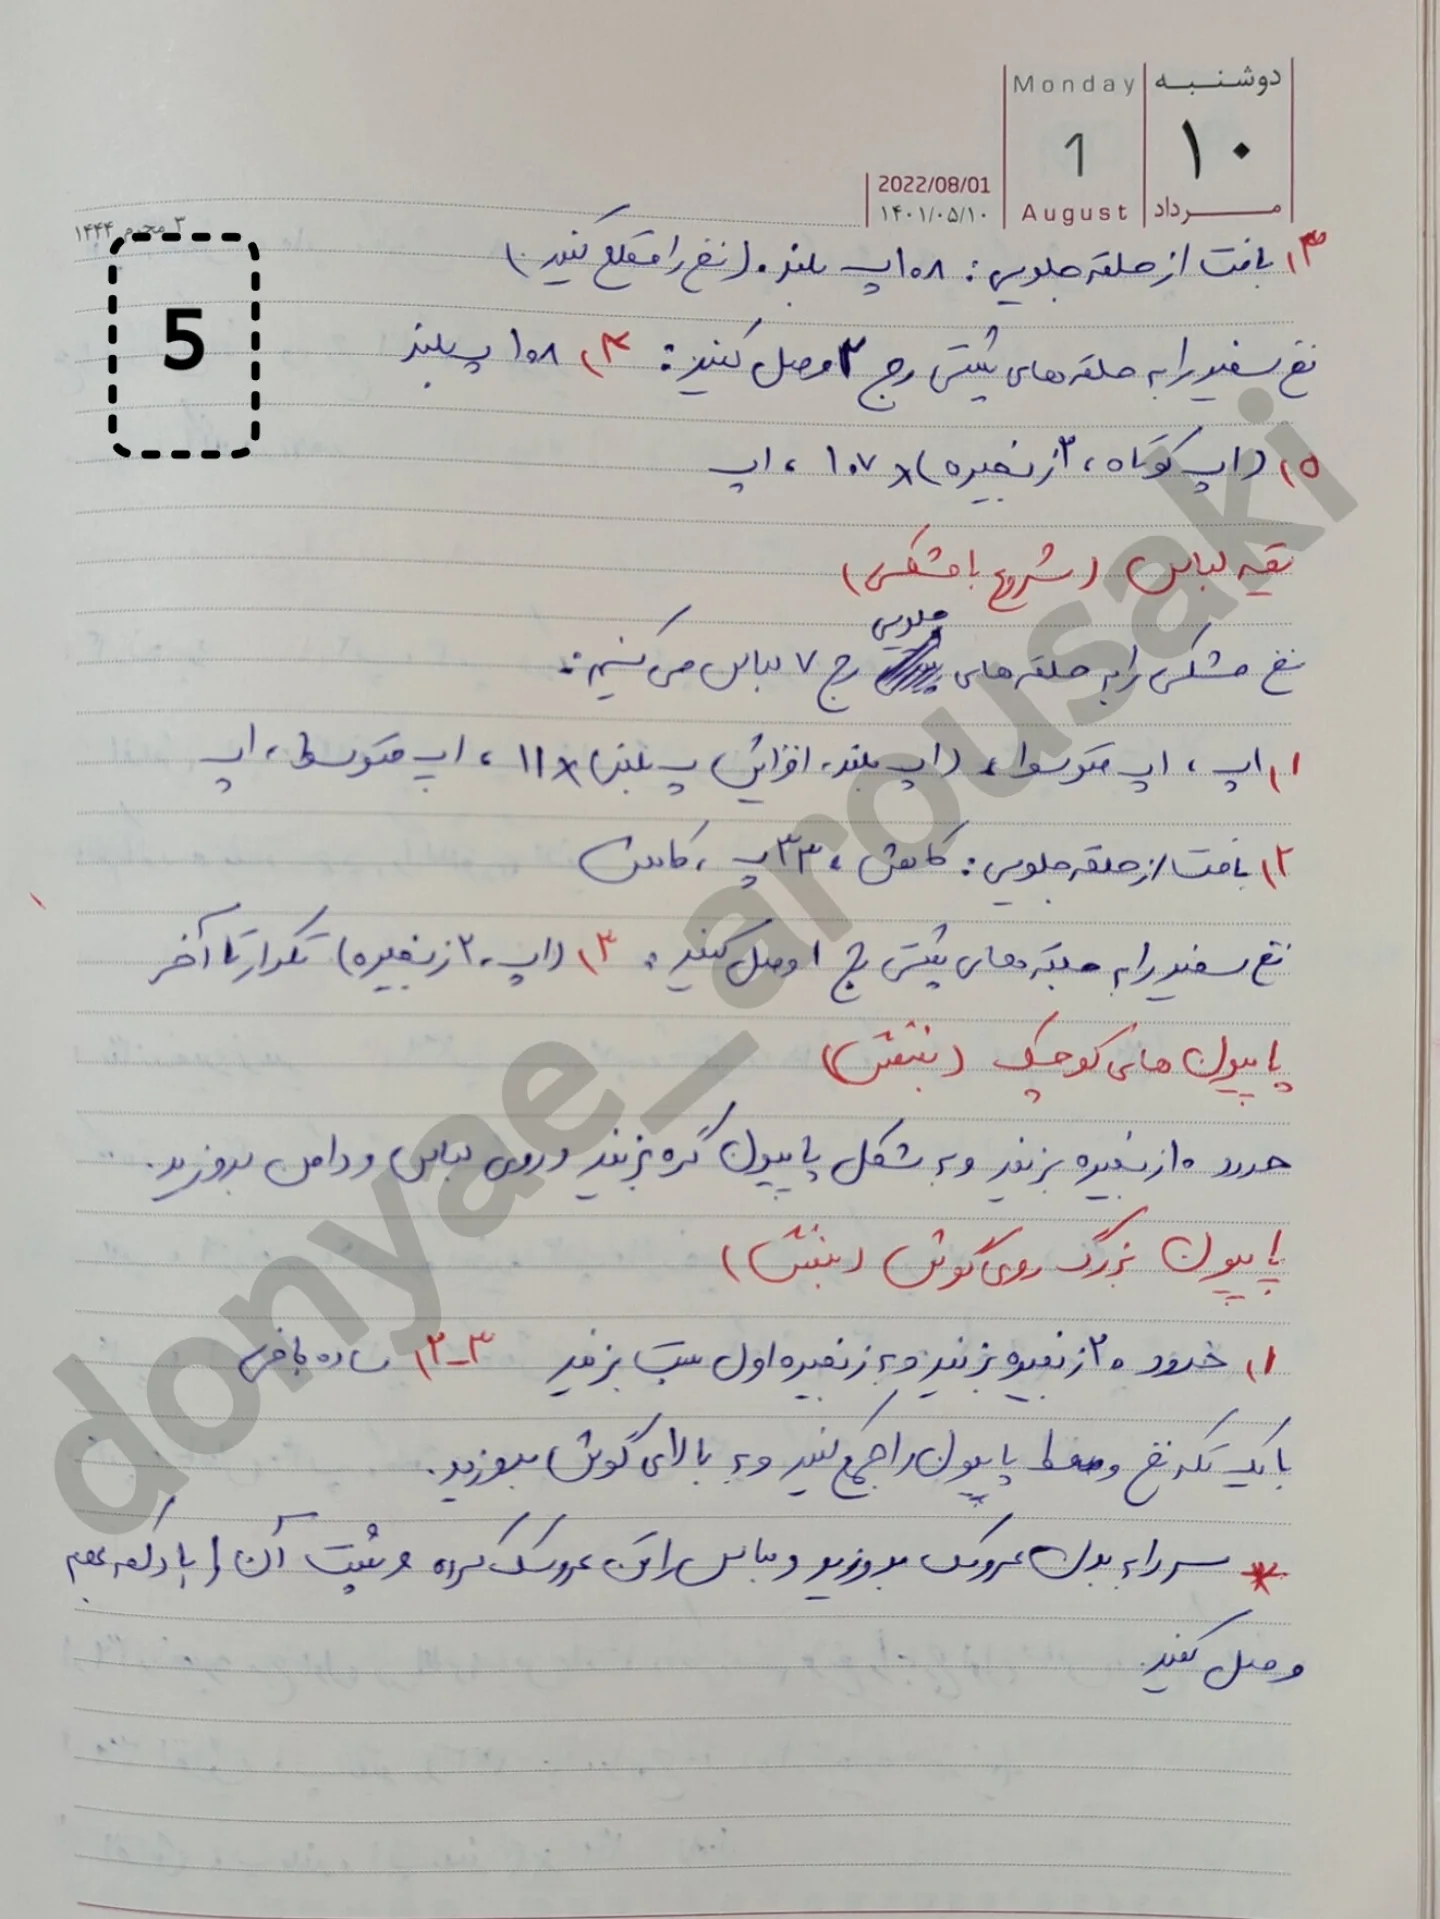 دوشنبه
۱۰
مرداد
Monday
1
August
2022/08/01
۱۴۰۱/۰۵/۱۰
۳ محرم ۱۴۴۴
5
۳) بافت از حلقه جلویی: ۱۰۸ پ بلند. (نخ را قطع کنید.)
نخ سفید را به حلقه های پشتی رج ۲ وصل کنید: ۴) ۱۰۸ پ بلند
۵) (۱پ کوتاه، ۲ زنجیره)×۱۰۷، ۱پ
یقه لباس (شروع با مشکی)
نخ مشکی را به حلقه های جلویی رج ۷ لباس می کنیم:
۱) ۱پ، ۱پ متوسط، (۱پ بلند، افزایش پ بلند)×۱۱، ۱پ متوسط، ۱پ
۲) بافت از حلقه جلویی: کاهش، ۳۳پ، کاهش
نخ سفید را به حلقه های پشتی رج ۱ وصل کنید. ۳) (۱پ، ۲ زنجیره) تکرار تا آخر
پاپیون های کوچک (بنفش)
حدود ۱۰ زنجیره بزنید و به شکل پاپیون گره بزنید و روی لباس و دامن بدوزید.
پاپیون بزرگ روی گوش (بنفش)
۱) حدود ۲۰ زنجیره بزنید و به زنجیره اول بزنید ۲-۳) ساده بافی
با یک تکه نخ وسط پاپیون را جمع کنید و به بالای گوش بدوزید.
* سر را به بدن عروسک بدوزید و لباس را تن عروسک کرده و پشت آن را با دکمه بهم
وصل کنید.
donyae_arousaki